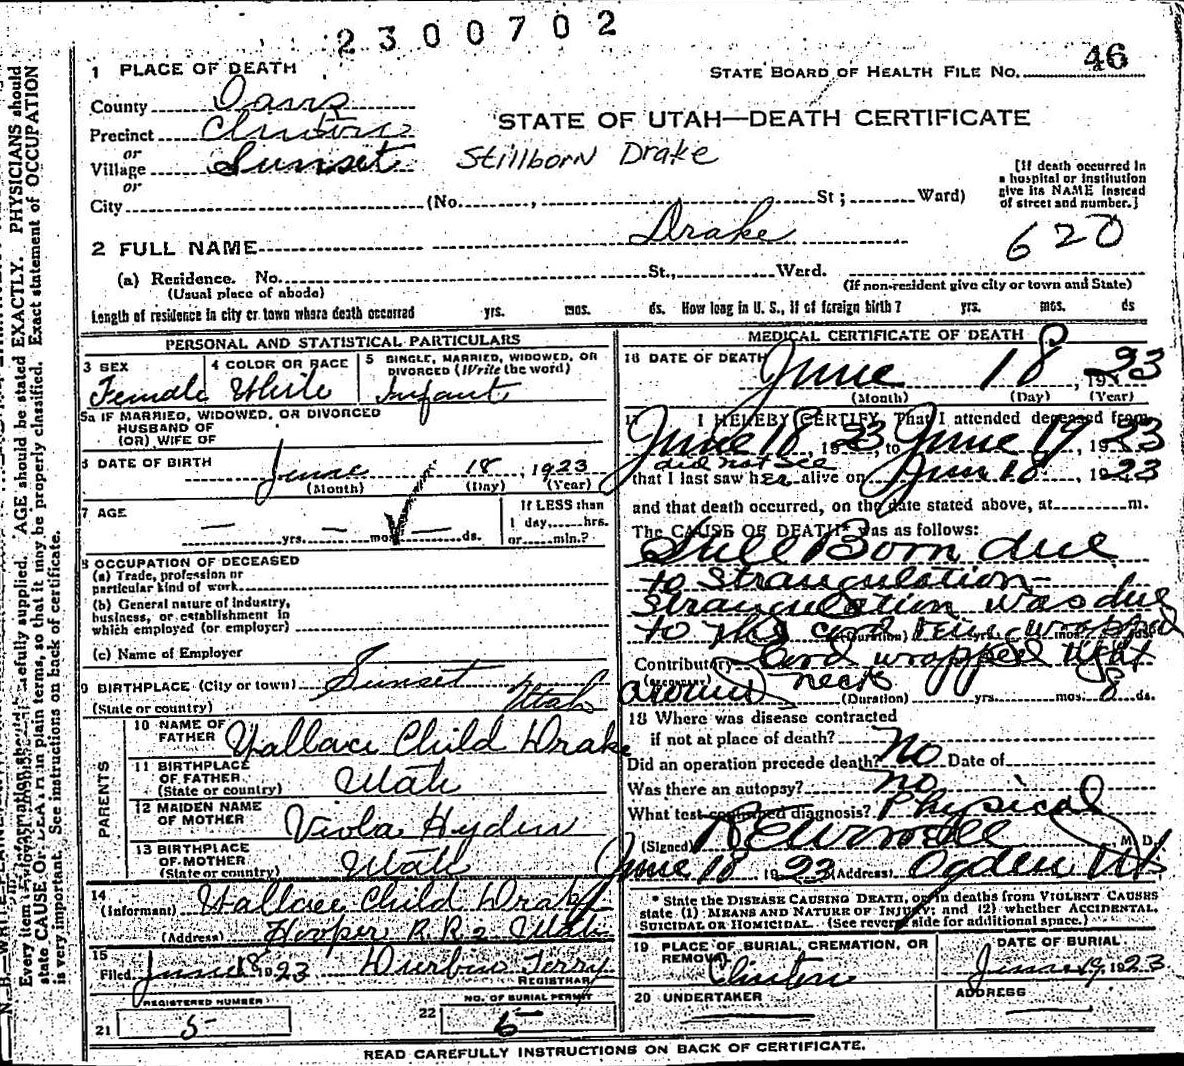 2300702
46
1 PLACE OF DEATH
STATE BOARD OF HEALTH FILE NO.
County Davis
STATE OF UTAH—DEATH CERTIFICATE
Precinct Clinton
or
Village Sunset
Stillborn Drake
or
City (No. , St ; Ward)
[If death occurred in a hospital or institution give its NAME instead of street and number.]
2 FULL NAME Drake
620
(a) Residence. No. St., Ward.
(Usual place of abode)
(If non-resident give city or town and State)
Length of residence in city or town where death occurred yrs. mos. ds. How long in U. S., if of foreign birth? yrs. mos. ds
PERSONAL AND STATISTICAL PARTICULARS
3 SEX
Female
4 COLOR OR RACE
White
5 SINGLE, MARRIED, WIDOWED, OR DIVORCED (Write the word)
Infant
5a IF MARRIED, WIDOWED, OR DIVORCED
HUSBAND OF
(OR) WIFE OF
6 DATE OF BIRTH June 18, 1923
(Month) (Day) (Year)
7 AGE
— yrs. — mos. — ds.
If LESS than
1 day, hrs.
or min.?
8 OCCUPATION OF DECEASED
(a) Trade, profession or
particular kind of work
(b) General nature of industry,
business, or establishment in
which employed (or employer)
(c) Name of Employer
9 BIRTHPLACE (City or town) Sunset
(State or country) Utah
PARENTS
10 NAME OF FATHER Wallace Child Drake
11 BIRTHPLACE OF FATHER (State or country) Utah
12 MAIDEN NAME OF MOTHER Viola Hyden
13 BIRTHPLACE OF MOTHER (State or country) Utah
14
(Informant) Wallace Child Drake
(Address) Hooper R. R. 2 Utah
15
Filed June 18 1923 Durbin Terry
REGISTRAR
REGISTERED NUMBER
21 5
NO. OF BURIAL PERMIT
22 5
MEDICAL CERTIFICATE OF DEATH
16 DATE OF DEATH June 18, 1923
(Month) (Day) (Year)
17 I HEREBY CERTIFY, That I attended deceased from
June 18, 1923, to June 19, 1923
did not see
that I last saw her alive on June 18, 1923
and that death occurred, on the date stated above, at m.
The CAUSE OF DEATH* was as follows:
Still Born due
to Strangulation—
Strangulation was due
to the cord being wrapped
(Duration) yrs. mos. ds.
Contributory Cord wrapped tight
(SECONDARY)
around neck
(Duration) yrs. mos. ds.
18 Where was disease contracted
if not at place of death?
Did an operation precede death? No Date of
Was there an autopsy? no
What test confirmed diagnosis? Physical
(Signed) M. D.
June 18 1923 (Address) Ogden Ut
* State the DISEASE CAUSING DEATH, or in deaths from VIOLENT CAUSES
state (1) MEANS AND NATURE OF INJURY; and (2) whether ACCIDENTAL,
SUICIDAL OR HOMICIDAL. (See reverse side for additional space.)
19 PLACE OF BURIAL, CREMATION, OR REMOVAL
Clinton
DATE OF BURIAL
June 19, 1923
20 UNDERTAKER
ADDRESS
READ CAREFULLY INSTRUCTIONS ON BACK OF CERTIFICATE.
AGE should be stated EXACTLY. PHYSICIANS should
state CAUSE OF DEATH in plain terms, so that it may be properly classified. Exact statement of OCCUPATION
is very important. See instructions on back of certificate.